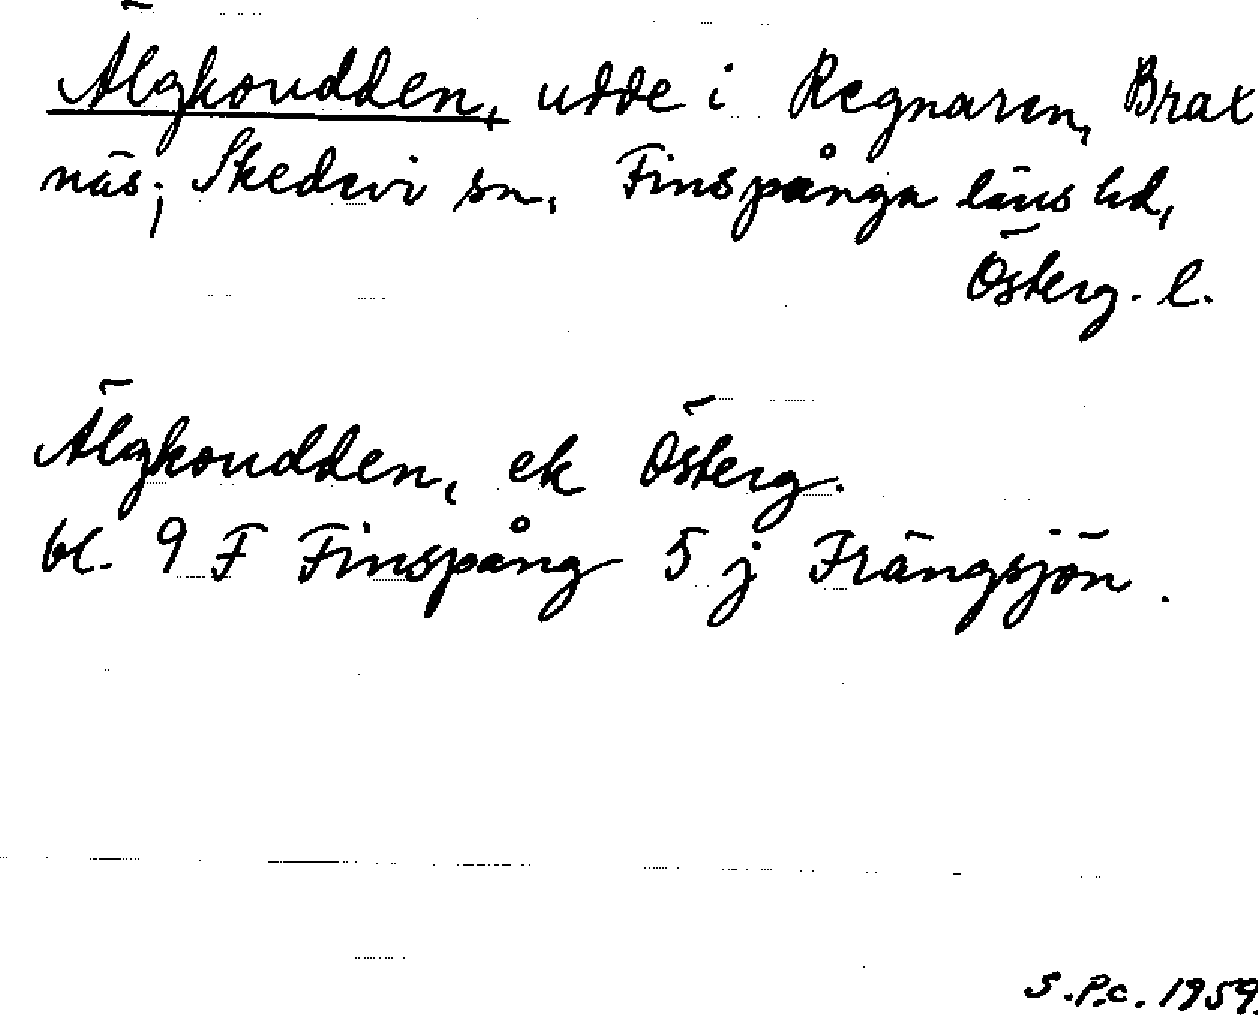 Älgkoudden, udde i Regnaren, Brax
näs; Skedevi sn, Finspånga läns hd,
Österg. l.
Älgkoudden, ek Österg.
bl. 9 F Finspång 5 j Frängsjön.
S.P.c. 1959.